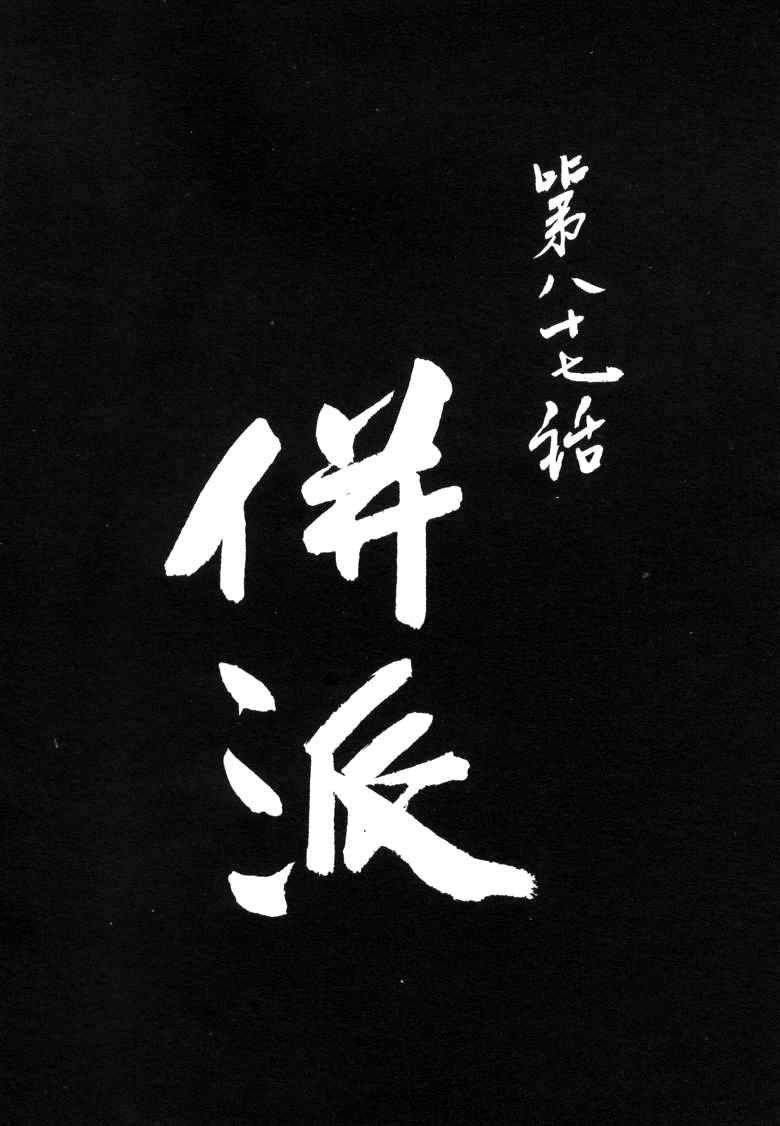 第八十七話
併派